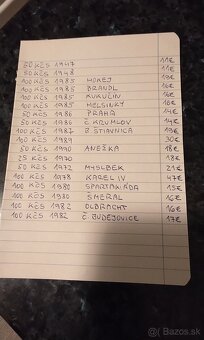 50 KČS 1947 11€
50 KČS 1948 11€
100 KČS 1985 HOKEJ 13€
100 KČS 1985 BRANDL 16€
100 KČS 1985 KUKUČÍN 16€
100 KČS 1985 HELSINKY 16€
50 KČS 1986 PRAHA 14€
50 KČS 1986 Č. KRUMLOV 14€
100 KČS 1987 B ŠTIAVNICA 13€
100 KČS 1989 30€
50 KČS 1990 ANEŽKA 18€
25 KČS 1970 18€
50 KČS 1972 MYSLBEK 21€
100 KČS 1978 KAREL IV 47€
100 KČS 1980 SPARTAKIÁDA 15€
100 KČS 1980 ŠMERAL 16€
100 KČS 1982 OLBRACHT 16€
100 KČS 1982 Č. BUDĚJOVICE 17€
Bazos.sk